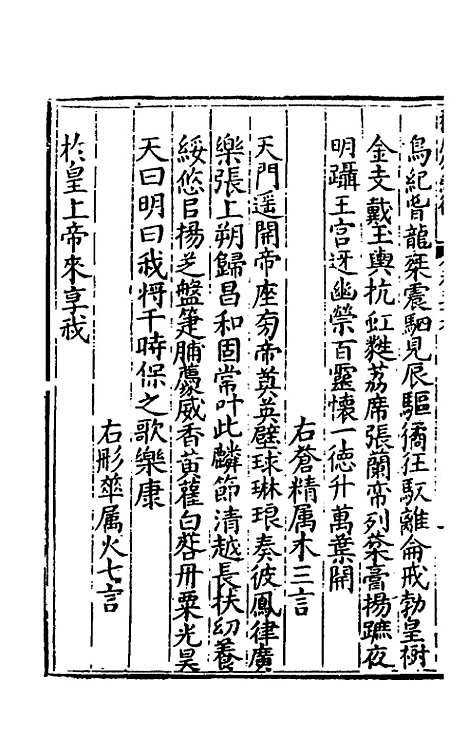 鳥紀旹龍震駟見辰驅馭離侖戒勃皇樹
金支戴玉輿杭虹荔席張蘭帝列膏揚蹠夜
明躡王宫迓幽禜百靈懷一徳升萬葉開
右蒼精属木三言
天門遥開帝座帝英壁球琳琅奏彼鳳律廣
樂張上朔歸昌和固常叶此麟節清越長扶幼養
綏悠㠯揚芝盤箑脯薦威香黄藿白丹粟光昊
天曰明曰我将千時保之歌樂康
右彤華属火七言
扵皇上帝來享我